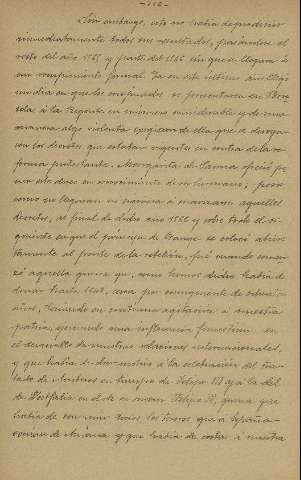 -112-
Sin embargo, esto no había de producir
inmediatamente todos sus resultados, pasándose el
resto del año 1565, y parte del 1566 sin que se llegara á
un rompimiento formal. Ya en este último año llegó
un día en que los conjurados se presentaron en Bru-
sela á la Regente en número considerable y de una
manera algo violenta exigieron de ella que se deroga-
sen los decretos que estaban vigentes en contra de la re-
forma protestante. Margarita de Parma ofreció po-
ner sus deseos en conocimiento de su hermano; pero
como no llegaran en manera á
decretos, al final de dicho año 1566 y sobre todo el si-
guiente en que el príncipe de Orange se colocó abier-
tamente al frente de la rebelión, fué cuando comen-
zó aquella guerra que, como hemos dicho, había de
durar hasta 1648, cerca por consiguiente de ochenta
años, teniendo en continua agitación á nuestra
patria, ejerciendo una influencia funestísima en
el desarrollo de nuestras relaciones internacionales,
y que había de dar motivo á la celebración del tra-
tado de Amberes en tiempo de Felipe III y á la del
de Westfalia en el de su sucesor Felipe IV, guerra que
había de consumir todos los tesoros que á España
venían de América y que había de costar á nuestra